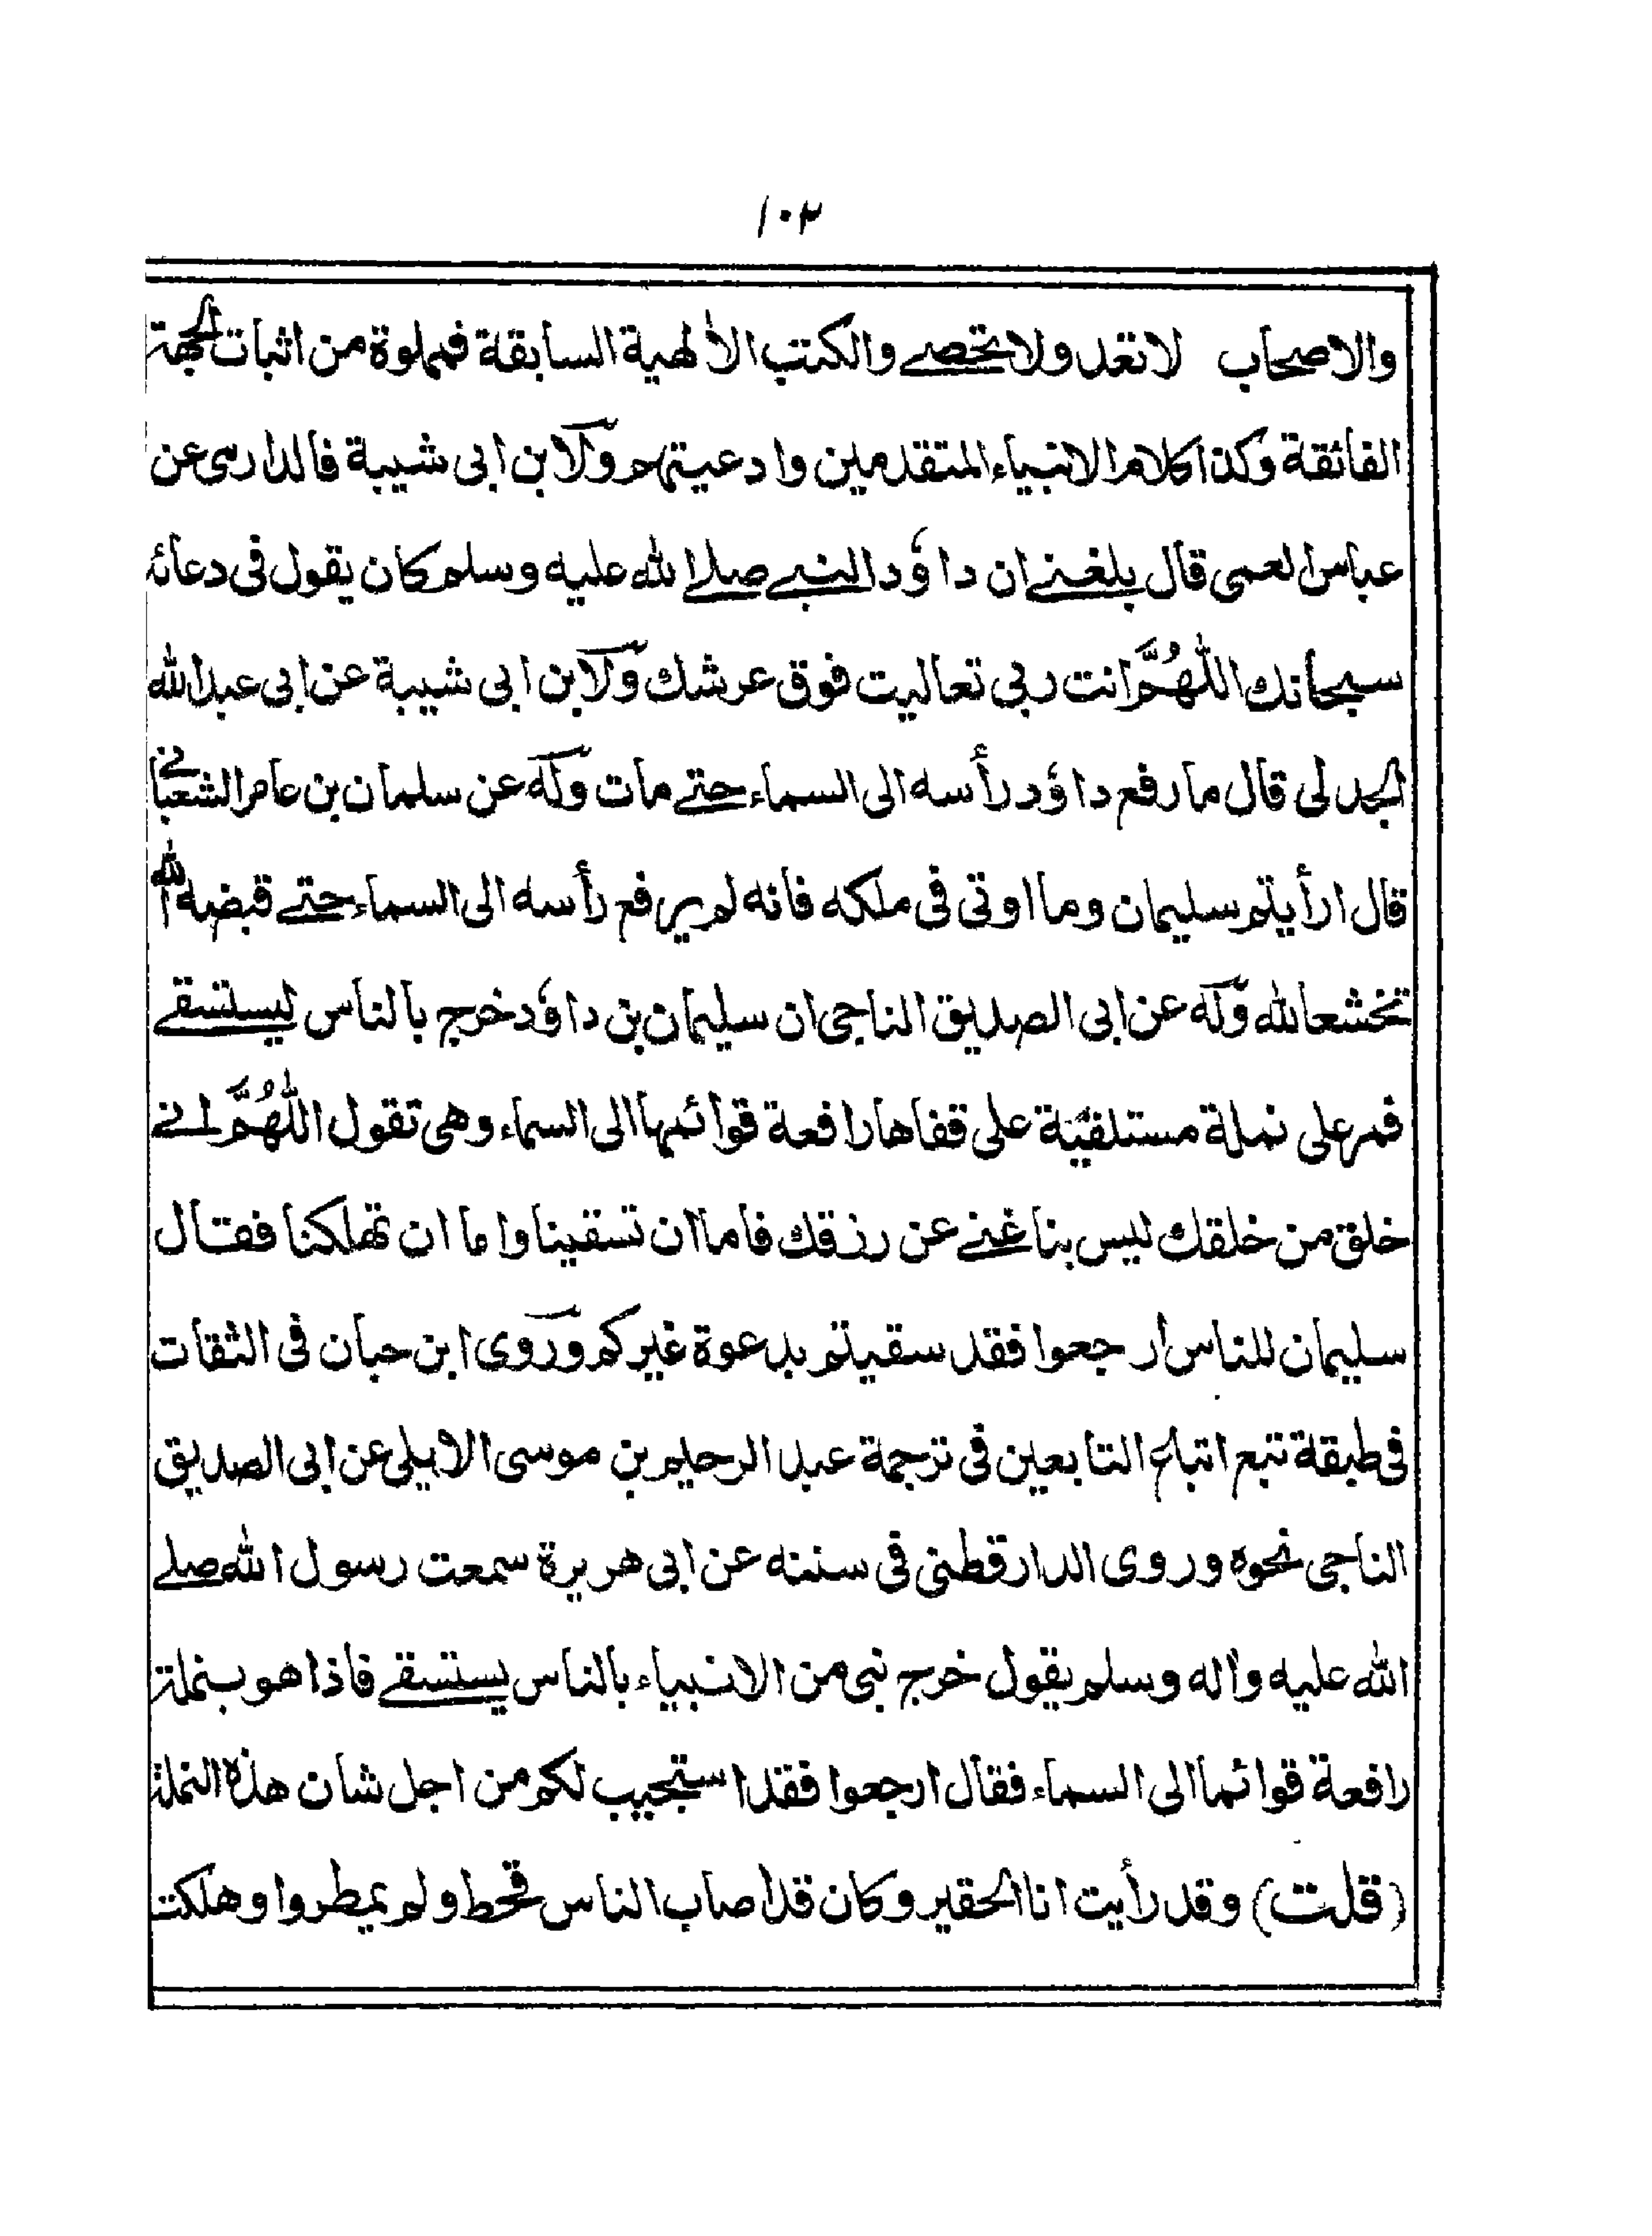 ١٠٢
والاصحاب لا تعد ولا تحصے والكتب الالٰهية السابقة فمملوة من اثبات الجهة
الفائقة وكذا كلام الانبياء المتقدمين وادعيتهم ولابن ابى شيبة فالدارمى عن
عباس العمى قال بلغنے ان داؤد النبے صلے الله عليه وسلم كان يقول فى دعائه
سبحانك اللّٰهُمَّ انت ربى تعاليت فوق عرشك ولابن ابى شيبة عن ابى عبد الله
الجدلى قال ما رفع داؤد رأسه الى السماء حتے مات وله عن سلمان بن عامر الشعبانے
قال ارأيتم سليمان وما اوتى فى ملكه فانه لم يرفع رأسه الى السماء حتے قبضه الله
تخشعا لله وله عن ابى الصديق الناجى ان سليمان بن داؤد خرج بالناس ليستسقے
فمر على نملة مستلقية على قفاها رافعة قوائمها الى السماء وهى تقول اللّٰهُمَّ انے
خلق من خلقك ليس بنا غنے عن رزقك فاما ان تسقينا واما ان تهلكنا فقال
سليمان للناس ارجعوا فقد سقيتم بدعوة غيركم وروى ابن حبان فى الثقات
فى طبقة تبع اتباع التابعين فى ترجمة عبد الرحيم بن موسى الايلى عن ابى الصديق
الناجى نحوه وروى الدارقطنى فى سننه عن ابى هريرة سمعت رسول الله صلے
الله عليه واله وسلم يقول خرج نبى من الانبياء بالناس يستسقے فاذا هو بنملة
رافعة قوائما الى السماء فقال ارجعوا فقد استجيب لكم من اجل شان هذه النملة
(قلت) وقد رأيت انا الحقير وكان قد اصاب الناس قحط ولم يمطروا وهلكت